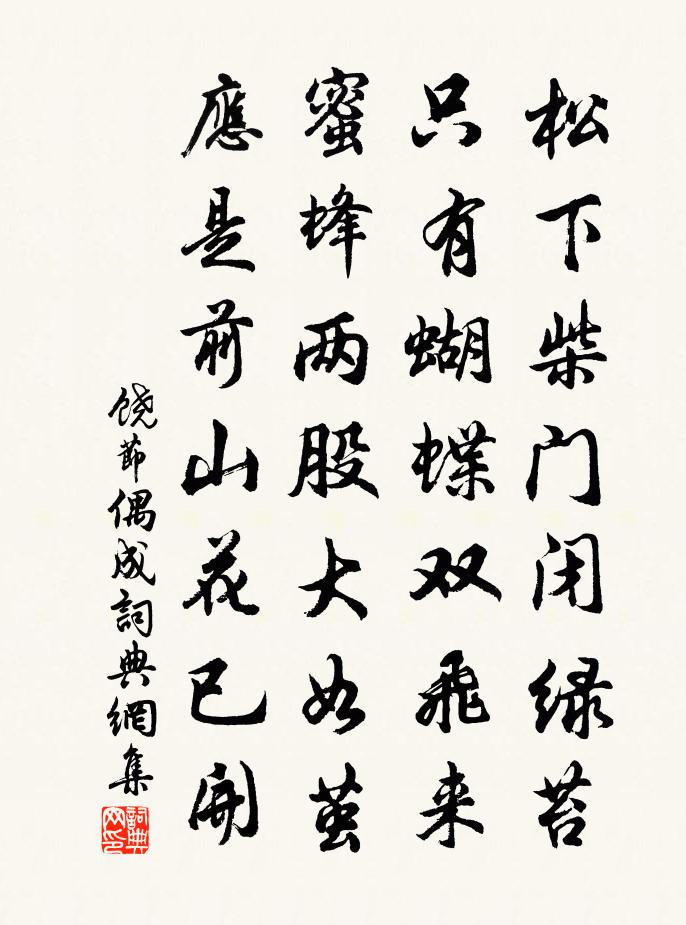 松下柴门闭绿苔
只有蝴蝶双飞来
蜜蜂两股大如茧
應是前山花已開
饶節偶成詞典網集
詞典網印